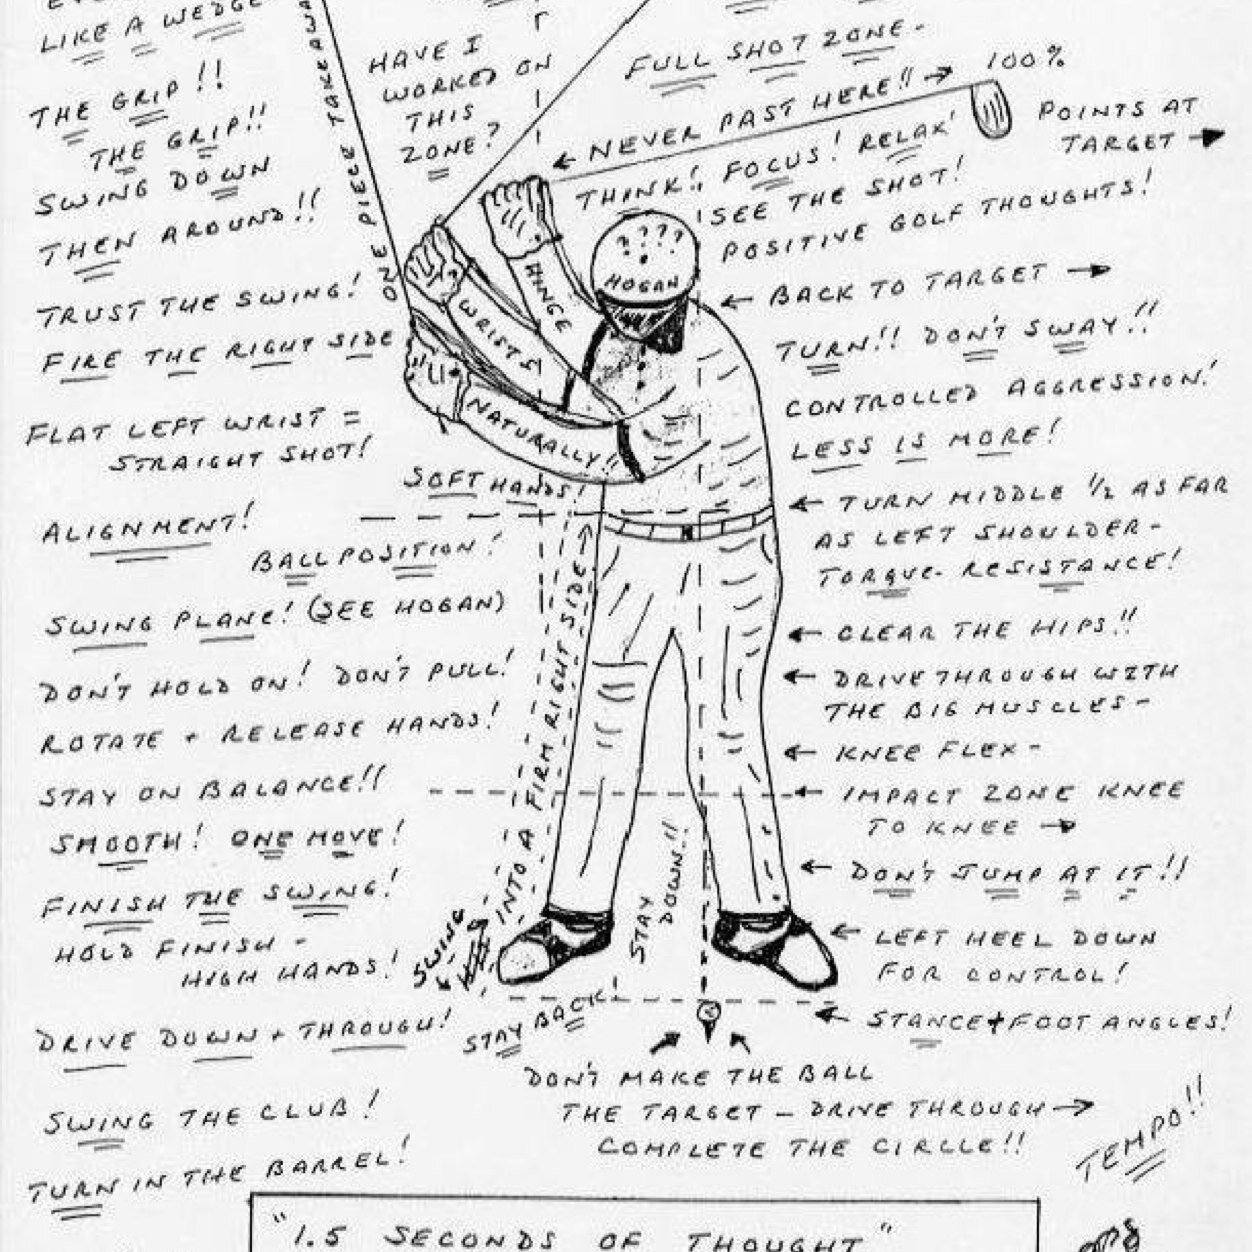 LIKE A WEDGE
THE GRIP!!
THE GRIP!!
SWING DOWN
THEN AROUND!!
TRUST THE SWING!
FIRE THE RIGHT SIDE
FLAT LEFT WRIST =
STRAIGHT SHOT!
ALIGNMENT!
BALL POSITION!
SWING PLANE! (SEE HOGAN)
DON'T HOLD ON! DON'T PULL!
ROTATE + RELEASE HANDS!
STAY ON BALANCE!!
SMOOTH! ONE MOVE!
FINISH THE SWING!
HOLD FINISH -
HIGH HANDS!
DRIVE DOWN + THROUGH!
SWING THE CLUB!
TURN IN THE BARREL!
ONE PIECE TAKEAWAY
HAVE I
WORKED ON
THIS
ZONE?
FULL SHOT ZONE -
100%
← NEVER PAST HERE!! →
POINTS AT
TARGET →
THINK! FOCUS! RELAX!
SEE THE SHOT!
POSITIVE GOLF THOUGHTS!
????
HOGAN
HINGE
WRISTS
NATURALLY!!
SOFT HANDS!
← BACK TO TARGET →
TURN!! DON'T SWAY!!
CONTROLLED AGGRESSION!
LESS IS MORE!
← TURN MIDDLE 1/2 AS FAR
AS LEFT SHOULDER -
TORQUE - RESISTANCE!
← CLEAR THE HIPS!!
← DRIVE THROUGH WITH
THE BIG MUSCLES -
← KNEE FLEX -
← IMPACT ZONE KNEE
TO KNEE →
← DON'T JUMP AT IT!!
← LEFT HEEL DOWN
FOR CONTROL!
← STANCE + FOOT ANGLES!
SWING
INTO A FIRM RIGHT SIDE →
STAY
DOWN!!
STAY BACK!
DON'T MAKE THE BALL
THE TARGET - DRIVE THROUGH →
COMPLETE THE CIRCLE!!
TEMPO!!
"1.5 SECONDS OF THOUGHT"